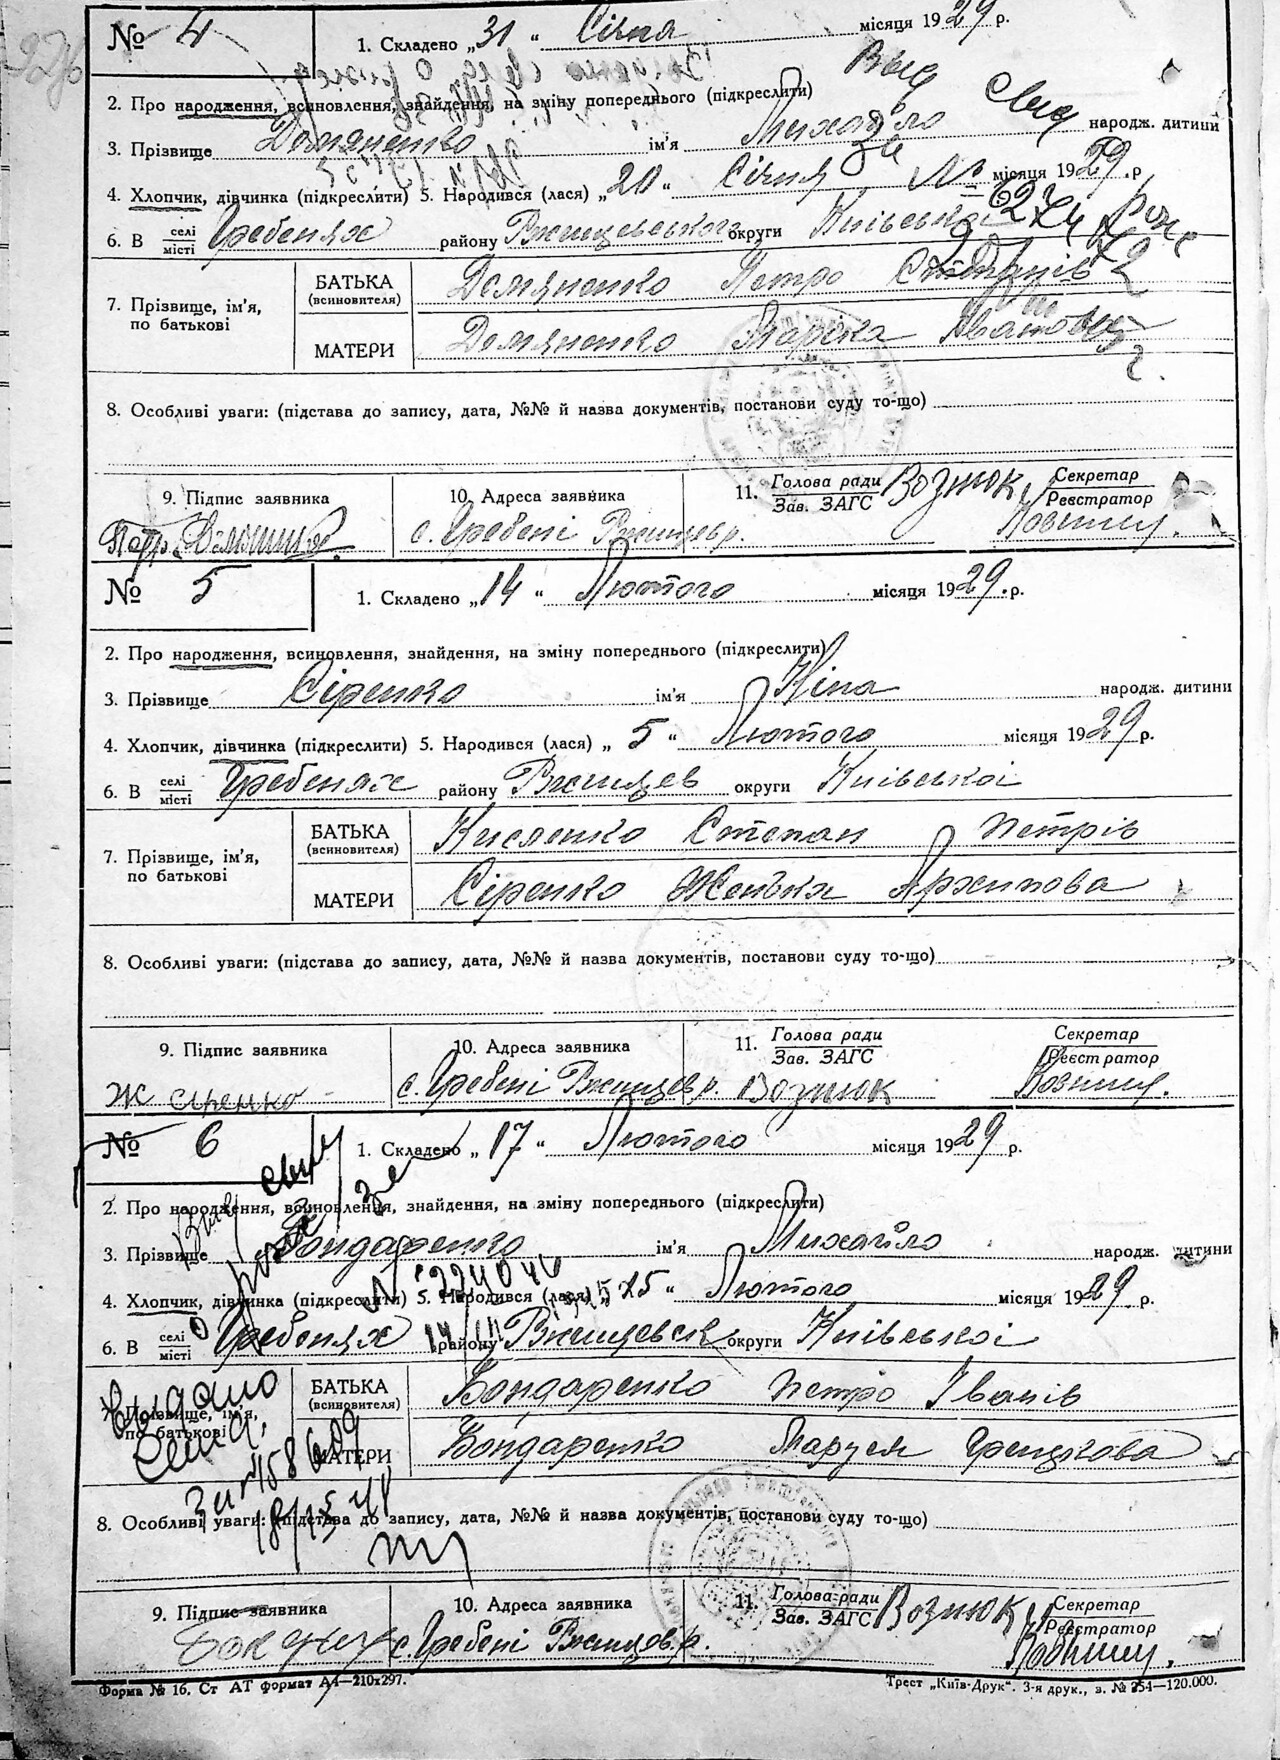 № 4
1. Складено „31“ Січня місяця 1929 р.
2. Про народження, всиновлення, знайдення, на зміну попереднього (підкреслити)
3. Прізвище Демяненко ім'я Михайло народж. дитини
4. Хлопчик, дівчинка (підкреслити) 5. Народився (лася) „20“ Січня місяця 1929 р.
6. В селі/місті Гребенях району Ржищевського округи Київської
7. Прізвище, ім'я, по батькові
БАТЬКА (всиновителя) Демяненко Петро Степанів
МАТЕРИ Демяненко Марійка Іванова
8. Особливі уваги: (підстава до запису, дата, №№ й назва документів, постанови суду то-що)
9. Підпис заявника
10. Адреса заявника
11. Голова ради / Зав. ЗАГС Вознюк Секретар / Реєстратор
с. Гребені Ржищев р.
№ 5
1. Складено „14“ Лютого місяця 1929. р.
2. Про народження, всиновлення, знайдення, на зміну попереднього (підкреслити)
3. Прізвище Сіренко ім'я Ніна народж. дитини
4. Хлопчик, дівчинка (підкреслити) 5. Народився (лася) „5“ Лютого місяця 1929 р.
6. В селі/місті Гребенях району Ржищев округи Київської
7. Прізвище, ім'я, по батькові
БАТЬКА (всиновителя) Кисленко Степан Петрів
МАТЕРИ Сіренко Женька Архипова
8. Особливі уваги: (підстава до запису, дата, №№ й назва документів, постанови суду то-що)
9. Підпис заявника
10. Адреса заявника
11. Голова ради / Зав. ЗАГС Секретар / Реєстратор
Ж Сіренко с. Гребені Ржищев р. Вознюк
№ 6
1. Складено „17“ Лютого місяця 1929 р.
2. Про народження, всиновлення, знайдення, на зміну попереднього (підкреслити)
3. Прізвище Бондаренко ім'я Михайло народж. дитини
№ 224046
4. Хлопчик, дівчинка (підкреслити) 5. Народився (лася) „15“ Лютого місяця 1929. р.
6. В селі/місті Гребенях району Ржищевськ округи Київської
видано
7. Прізвище, ім'я, по батькові
БАТЬКА (всиновителя) Бондаренко Петро Іванів
МАТЕРИ Бондаренко Маруся Грицькова
8. Особливі уваги: (підстава до запису, дата, №№ й назва документів, постанови суду то-що)
9. Підпис заявника
10. Адреса заявника
11. Голова ради / Зав. ЗАГС Вознюк Секретар / Реєстратор
с. Гребені Ржищов. р.
Форма № 16. Ст АТ формат А4—210х297.
Трест „Київ-Друк“. 3-я друк., з. № 254—120.000.